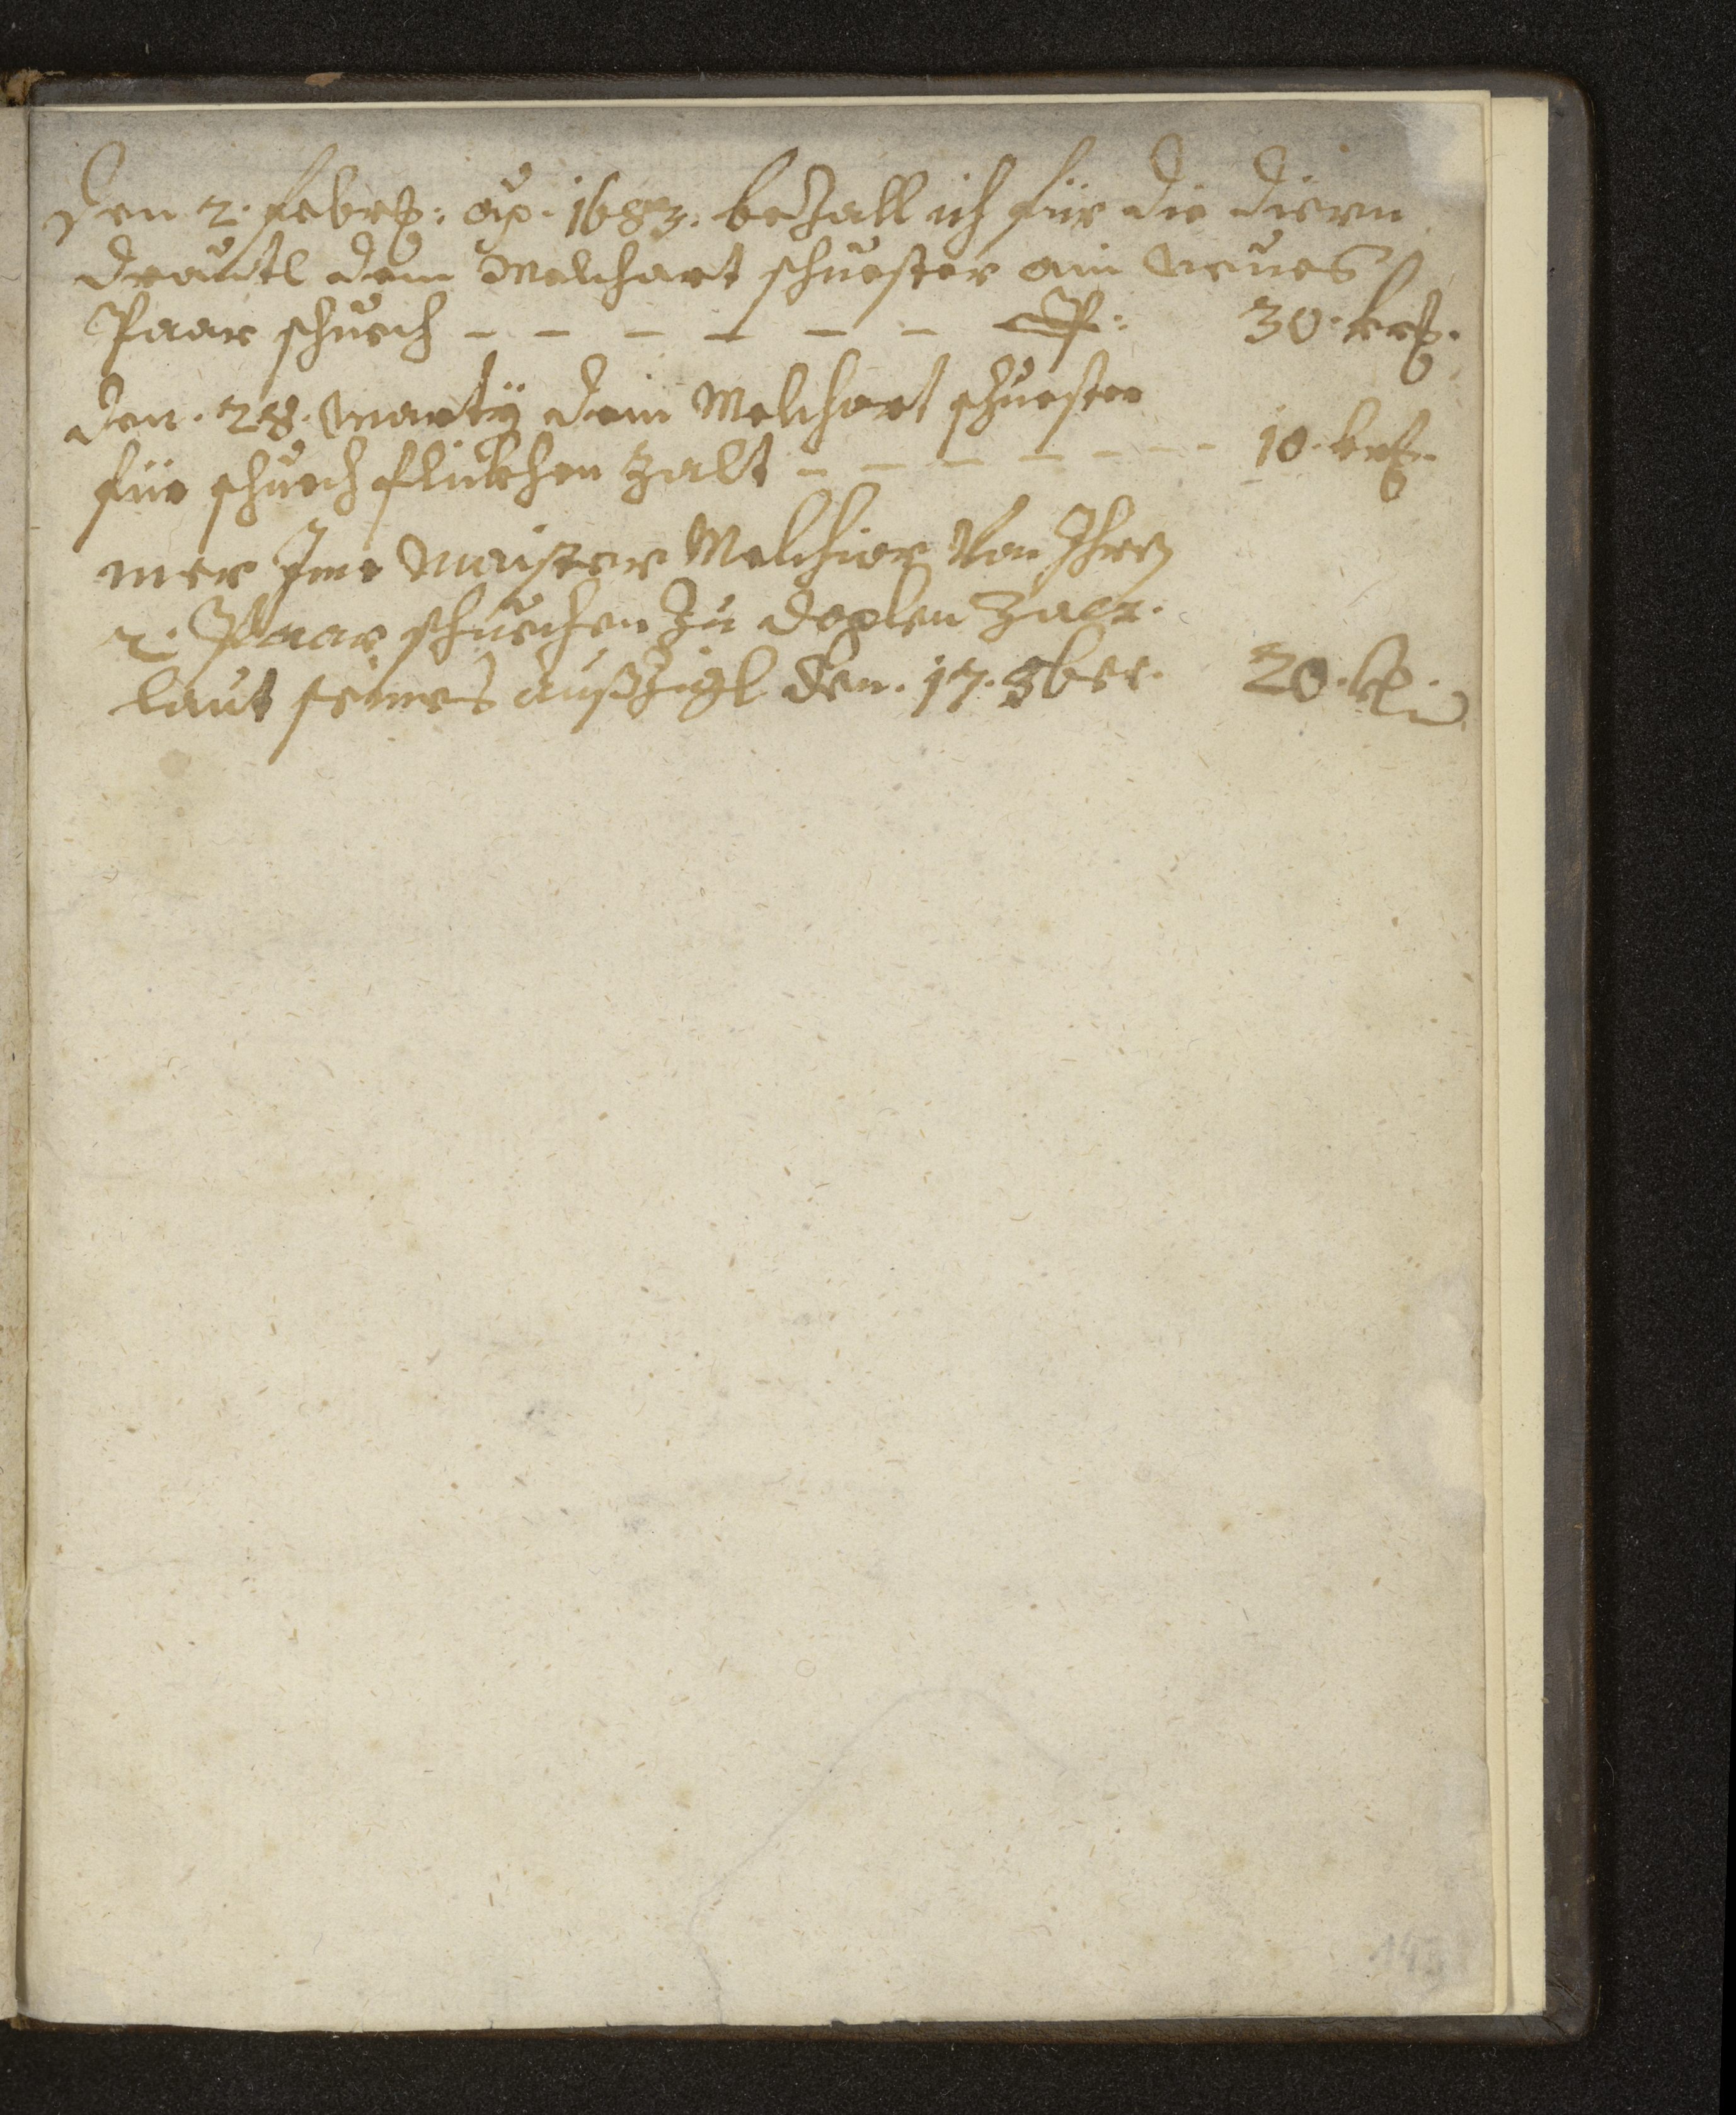 Den 2. Febrß: ao. 1683. bezall ich für die diern
Drautl dem Melchart schuester ain neues
Paar schuech — — — — — — 30. krß.
den. 28. Marty dem Melchart schuester
für schuech flickhen zalt — — — — — — — 10. krß.
mer Ime Maister Melchior von Ihren
2. Paar schuechen zu doplen zalt.
laut seines außzigl den. 17. 8ber. 20. kr